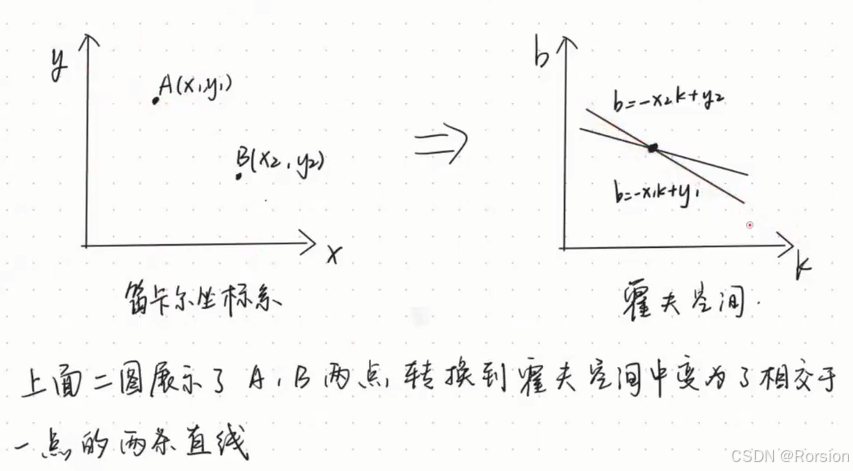 y
A(x₁y₁)
B(x₂,y₂)
x
笛卡尔坐标系
⇒
b
b=-x₂k+y₂
b=-x₁k+y₁
k
霍夫空间.
上面二图展示了A,B两点,转换到霍夫空间中变为了相交于
一点的两条直线
CSDN @Rorsion